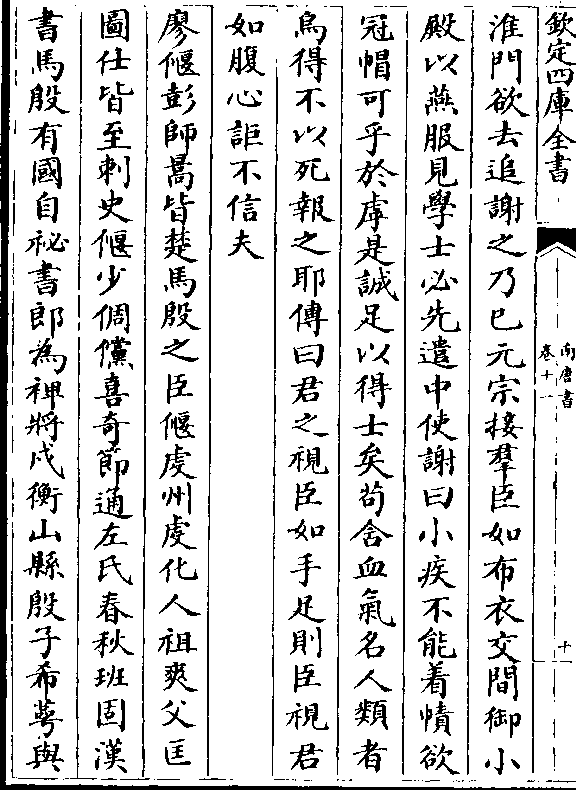 欽定四庫全書
南唐書
卷十一
十
淮門欲去追謝之乃已元宗接羣臣如布衣交間御小
殿以燕服見學士必先遣中使謝曰小疾不能着幘欲
冠帽可乎於虖是誠足以得士矣茍舍血氣名人類者
烏得不以死報之耶傳曰君之視臣如手足則臣視君
如腹心詎不信夫
廖偃彭師暠皆楚馬殷之臣偃虔州虔化人祖爽父匡
圖仕皆至刺史偃少倜儻喜奇節通左氏春秋班固漢
書馬殷有國自祕書郎為裨將戍衡山縣殷子希萼與